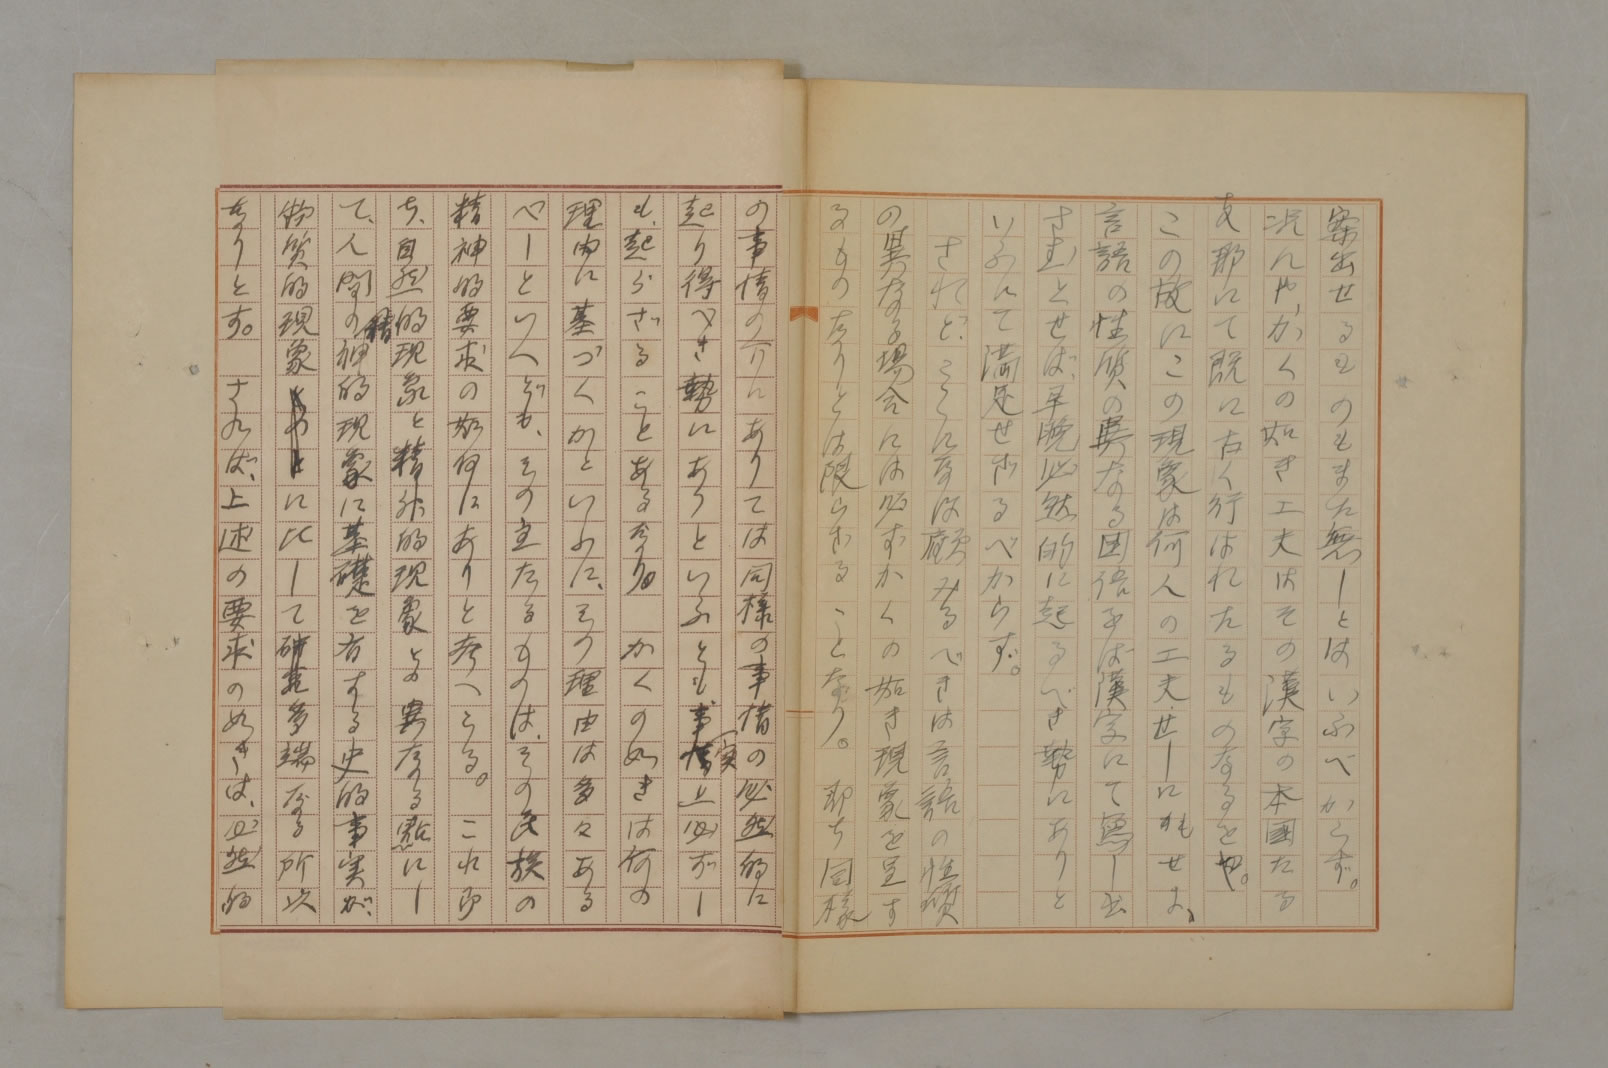 案出せるものもまた無しとはいふべからず。
况んや、かくの如き工夫はその漢字の本國たる
支那にて既に古く行はれたるものなるをや。
この故にこの現象は何人の工夫せしにもせよ、
言語の性質の異なる国語をば漢字にて寫し出
さむとせば、早晩必然的に起るべき勢にありと
いふにて満足せざるべからず。
されど、こゝになほ顧みるべきは言語の性質
の異なる場合には必ずかくの如き現象を呈す
るものなりとは限らざることなり。即ち同樣
の事情の下にありては同様の事情の必然的に
起り得べき勢にありといふとも事実上必ずし
も、起らざることあるなり。かくの如きは何の
理由に基づくかといふに、その理由は多々ある
べしといへども、その主たるものは、その民族の
精神的要求の如何にありと考へらる。これ即
ち、自然的現象と精神的現象との異なる點にし
て、人間の精神的現象に基礎を有する史的事実が、
物質的現象に比して研究多端なる所以
なりとす。されば、上述の要求の如きは、必然的